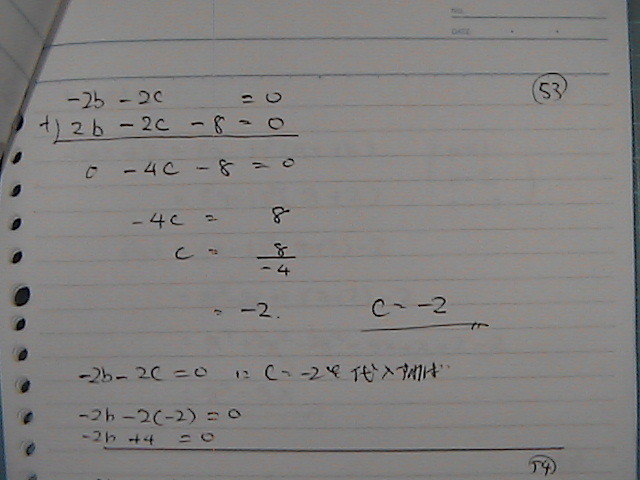 NO.
DATE
53
-2b - 2c = 0
+) 2b - 2c - 8 = 0
0 - 4c - 8 = 0
-4c = 8
c = 8/-4
= -2. c = -2
-2b - 2c = 0 に c = -2を代入すれば
-2b - 2(-2) = 0
-2b + 4 = 0
54